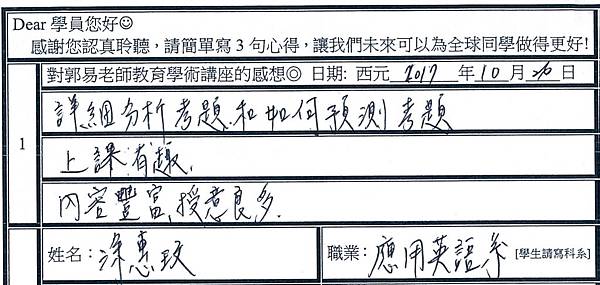 Dear 學員您好☺
感謝您認真聆聽，請簡單寫 3 句心得，讓我們未來可以為全球同學做得更好!
1
對郭易老師教育學術講座的感想◎ 日期: 西元 2017 年 10 月 26 日
詳細分析考題和如何預測考題
上課有趣,
內容豐富,授意良多.
姓名：涂惠玟
職業：應用英語系 [學生請寫科系]